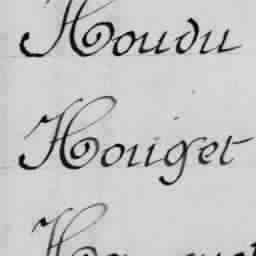 Houdu
Houget